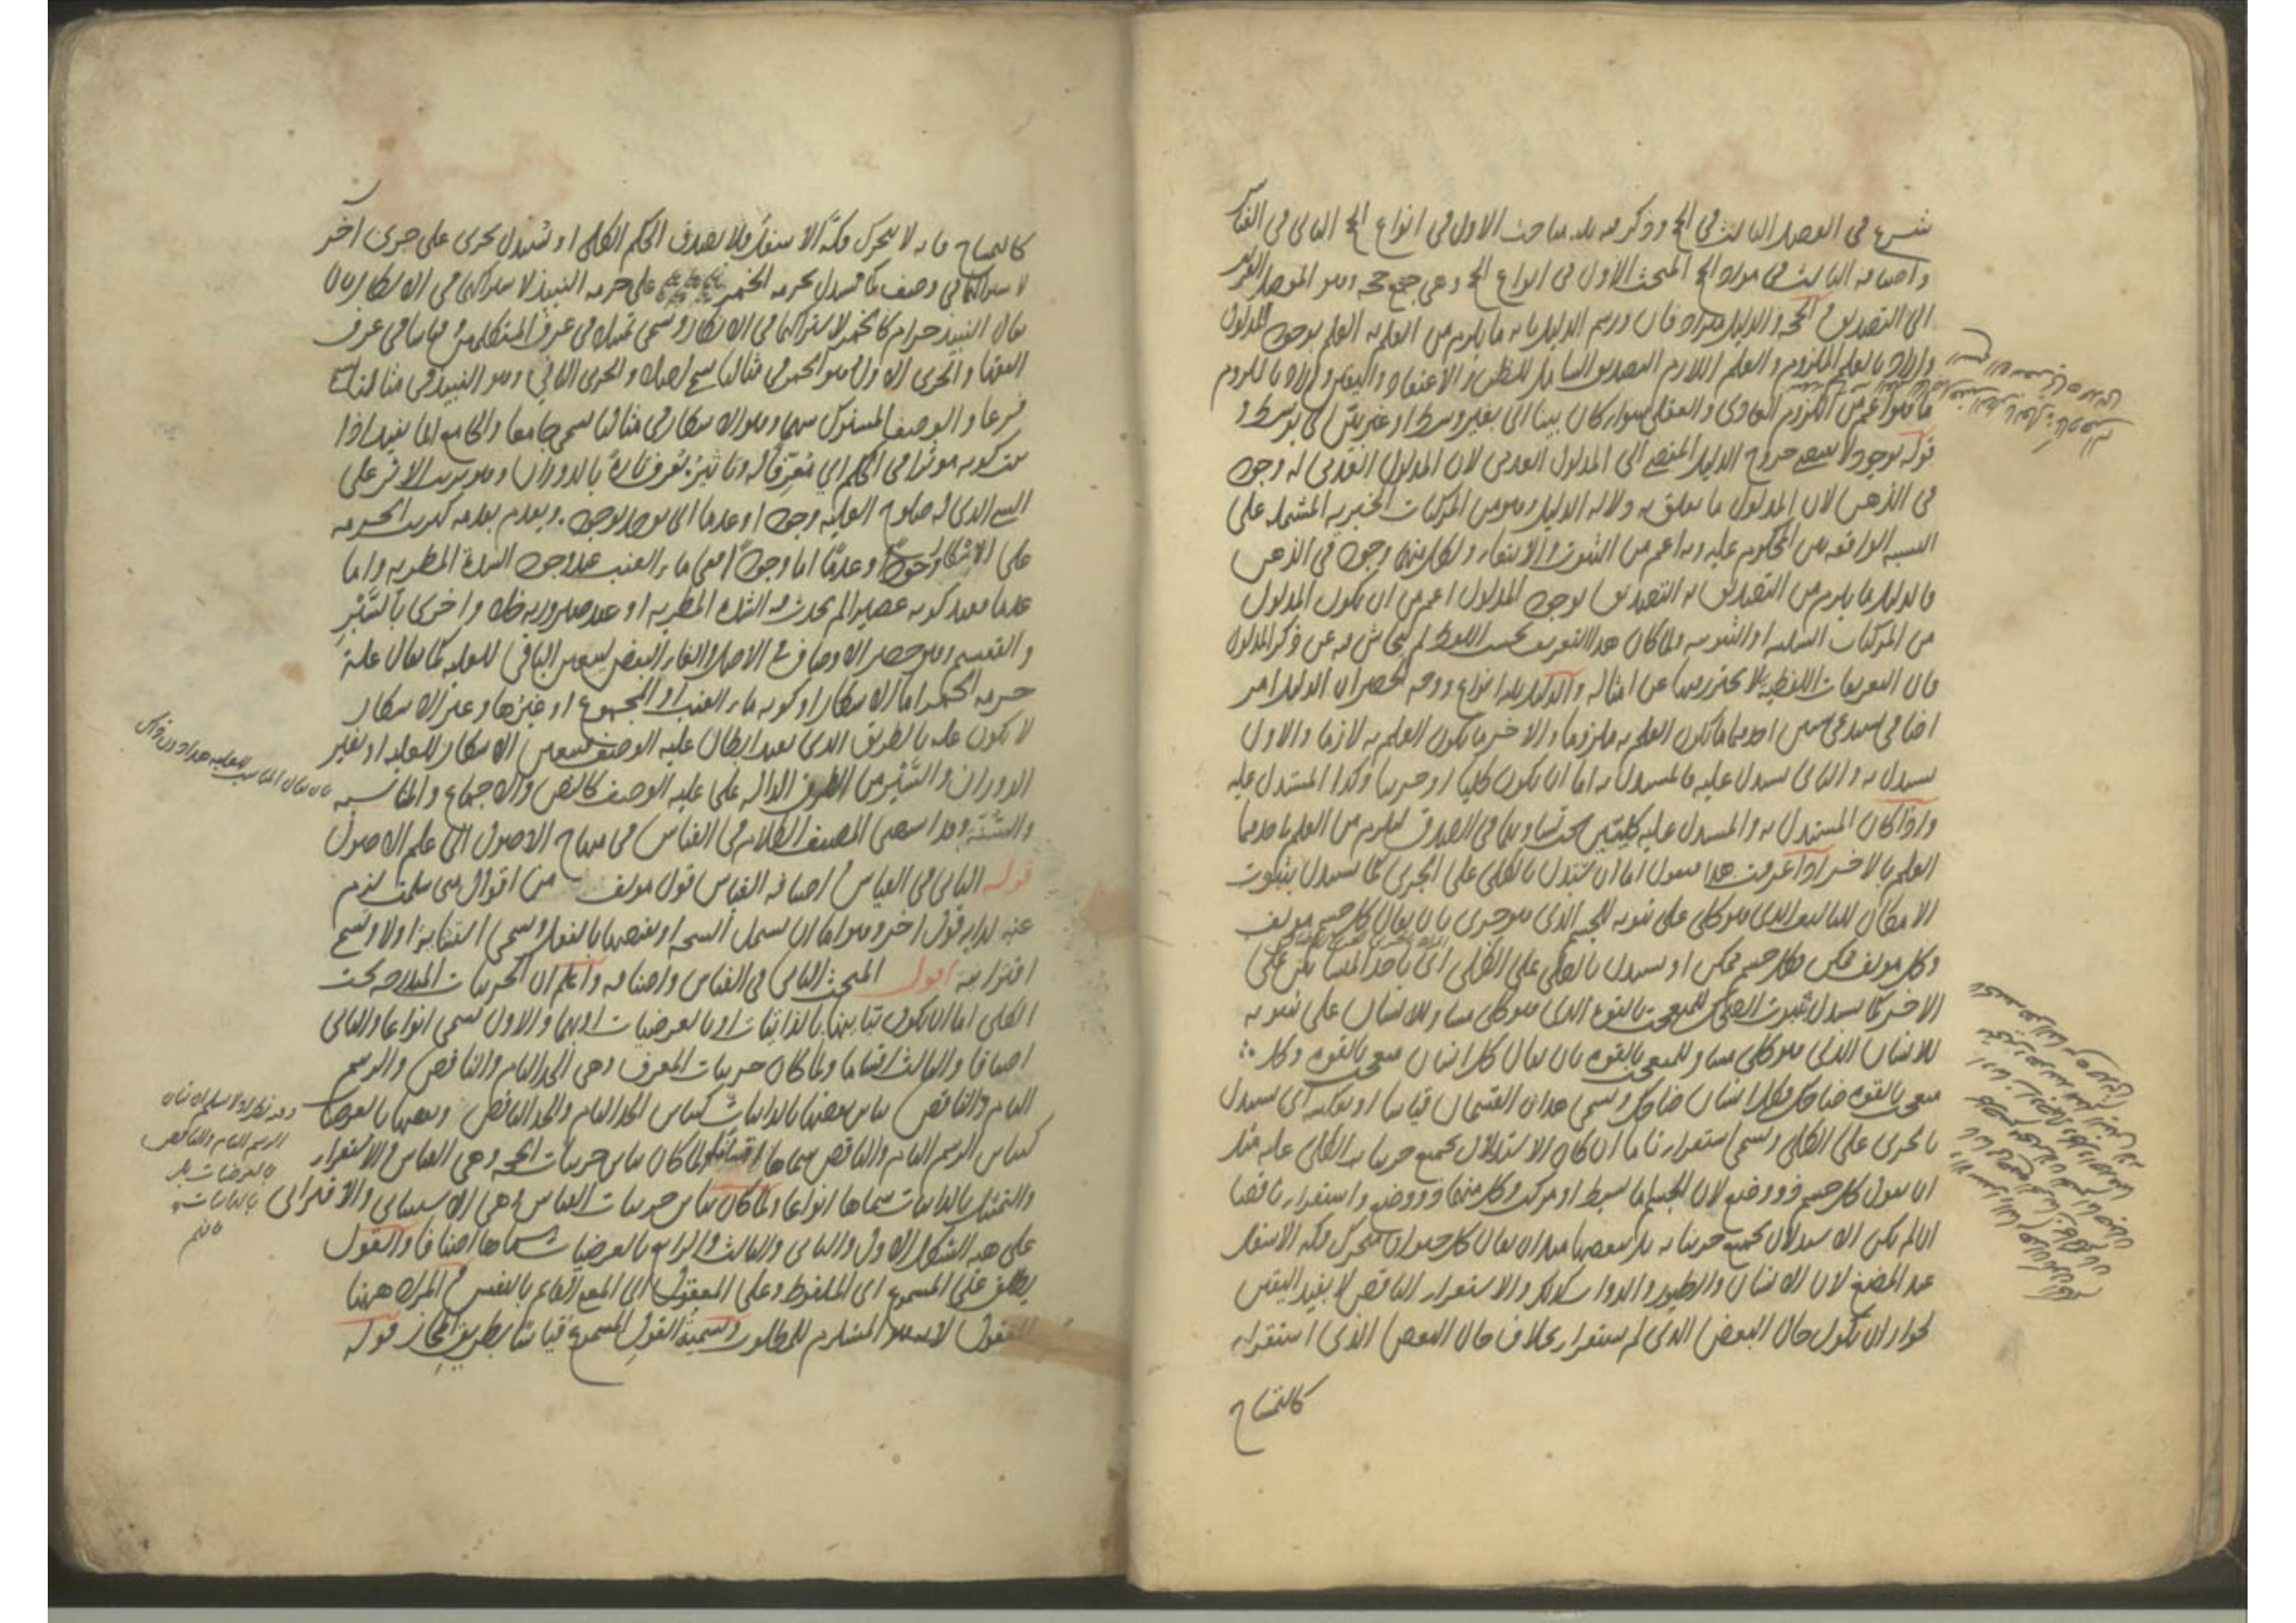 شرع فى الفصل الثالث فى الحجج وذكر فيه ثلث مباحث الاول فى انواع الحجج الثانى فى القياس
واصنافه الثالث فى مواد الحجج المبحث الاول فى انواع الحجج وهى جمع حجة وهو الموصل القريب
الى التصديق والحجة والدليل مترادفان ورسم الدليل بانه ما يلزم من العلم به العلم بوجود المدلول
والمراد بالعلم الملزوم والعلم اللازم التصديق الشامل للظن والاعتقاد واليقين والمراد باللزوم
ما هو اعم من اللزوم العادى والعقلى سواء كان بينا اى بغير وسط او غير بين اى بوسط و
قوله بوجود لا يقتضى خروج الدليل المفضى الى المدلول العدمى لان المدلول العدمى له وجود
فى الذهن لان المدلول ما يتعلق به دلالة الدليل وهو من المركبات الخبرية المشتملة على
النسبة الواقعة بين المحكوم عليه وبه اعم من الثبوت والانتفاء ولكل منهما وجود فى الذهن
فالدليل ما يلزم من التصديق به التصديق بوجود المدلول اعم من ان يكون المدلول
من المركبات السلبية او الثبوتية ولما كان هذا التعريف بحسب اللفظ لم يتحاش فيه عن ذكر المدلول
فان التعريفات اللفظية لا يحترز فيها عن امثاله والدليل ثلثة انواع ووجه الحصر ان الدليل امر
اضافى يستدعى شيئين احدهما ما يكون العلم به ملزوما والاخر ما يكون العلم به لازما والاول
يستدل به والثانى يستدل عليه فالمستدل به اما ان يكون كليا او جزئيا وكذا المستدل عليه
واذا كان المستدل به والمستدل عليه كليين يجب تساويهما فى الصدق ليلزم من العلم باحدهما
العلم بالاخر اذا عرفت هذا فنقول اما ان يستدل بالكلى على الجزئى كما يستدل بثبوت
الامكان للتاليف الذى هو كلى على ثبوته للجسم الذى هو جزئى بان يقال كل جسم مولف
وكل مولف ممكن فكل جسم ممكن او يستدل بالكلى على الكلى اى باحد المتساويين على
الاخر كما يستدل بثبوت الضحك للمتعجب بالقوة الذى هو كلى مساو للانسان على ثبوته
للانسان الذى هو كلى مساو للمتعجب بالقوة بان يقال كل انسان متعجب بالقوة وكل
متعجب بالقوة ضاحك فكل انسان ضاحك ويسمى هذان القسمان قياسا او بعكسه اى يستدل
بالجزئى على الكلى ويسمى استقراء تاما ان كان الاستدلال بجميع جزئيات الكلى عليه مثل
ان نقول كل جسم فذو وضع لان الجسم اما بسيط او مركب وكل منهما فذو وضع واستقراء ناقصا
ان لم يكن الاستدلال بجميع جزئياته بل ببعضها مثل ان يقال كل حيوان متحرك فكه الاسفل
عند المضغ لان الانسان والطيور والدواب كذلك والاستقراء الناقص لا يفيد اليقين
لجواز ان يكون حال البعض الذى لم يستقرا بخلاف حال البعض الذى استقرا
كالتمساح
كالتمساح فانه لا يتحرك فكه الاسفل فلا يصدق الحكم الكلى او يستدل بجزئى على جزئى آخر
لاشتراكهما فى وصف كما يستدل بحرمة الخمر على حرمة النبيذ لاشتراكهما فى الاسكار بان
يقال النبيذ حرام كالخمر لاشتراكهما فى الاسكار ويسمى تمثيلا فى عرف المتكلمين وقياسا فى عرف
الفقهاء والجزئى الاول وهو الخمر فى مثالنا يسمى اصلا والجزئى الثانى وهو النبيذ فى مثالنا يسمى
فرعا والوصف المشترك بينهما وهو الاسكار فى مثالنا يسمى جامعا والجامع انما يفيد اذا
ثبت كونه موثرا فى الحكم اى معرفا له وتاثيره يعرف تارة بالدوران وهو ترتب الاثر على
الشى الذى له صلوح العلية وجودا وعدما اى يوجد بوجوده ويعدم بعدمه كترتب الحرمة
على الاسكار وجودا وعدما اما وجودا ففى ماء العنب عند وجود الشدة المطربة واما
عدما فعند كونه عصيرا لم يحدث فيه الشدة المطربة او عند صيرورته خلا واخرى بالسبر
والتقسيم وهو حصر الاوصاف فى الاصل والغاء البعض ليتعين الباقى للعلية كما يقال علة
حرمة الخمر اما الاسكار او كونه ماء العنب او المجموع او غيرها وغير الاسكار
لا يكون علة بالطريق الذى يفيد ابطال علية الوصف فتعين الاسكار للعلية او بغير
الدوران والسبر من الطرق الدالة على علية الوصف كالنص والاجماع والمناسبة
والشبه وقد استقصى المصنف الكلام فى القياس فى منهاج الاصول الى علم الاصول
قوله الثانى فى القياس واصنافه القياس قول مولف من اقوال متى سلمت لزم
عنه لذاته قول اخر وهو اما ان يشمل النتيجة او نقيضها بالفعل ويسمى استثنائيا اولا ويسمى
اقترانيا اقول المبحث الثانى فى القياس واصنافه واعلم ان الجزئيات المندرجة تحت
الكلى اما ان يكون تباينها بالذاتيات او بالعرضيات او بهما والاول يسمى انواعا والثانى
اصنافا والثالث اقساما ولما كان جزئيات المعرف وهى الحد التام والناقص والرسم
التام والناقص تباين بعضها بالذاتيات كتباين الحد التام والحد الناقص وبعضها بالعرضيات
كتباين الرسم التام والناقص سماها اقساما ولما كان تباين جزئيات الحجة وهى القياس والاستقراء
والتمثيل بالذاتيات سماها انواعا ولما كان تباين جزئيات القياس وهى الاستثنائى والاقترانى
على هيئة الشكل الاول والثانى والثالث والرابع بالعرضيات سماها اصنافا والقول
يطلق على المسموع اى الملفوظ وعلى المعقول اى المعنى القائم بالنفس والمراد ههنا
المعقول المستلزم للمطلوب وتسمية القول المسموع قياسا بطريق المجاز قوله
وفيه نظر اذ لا نسلم ان تباين
الرسم التام والناقص
بالعرضيات بل
بالذاتيات